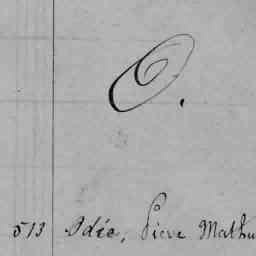 O.
513 Odée, Pierre Mathu